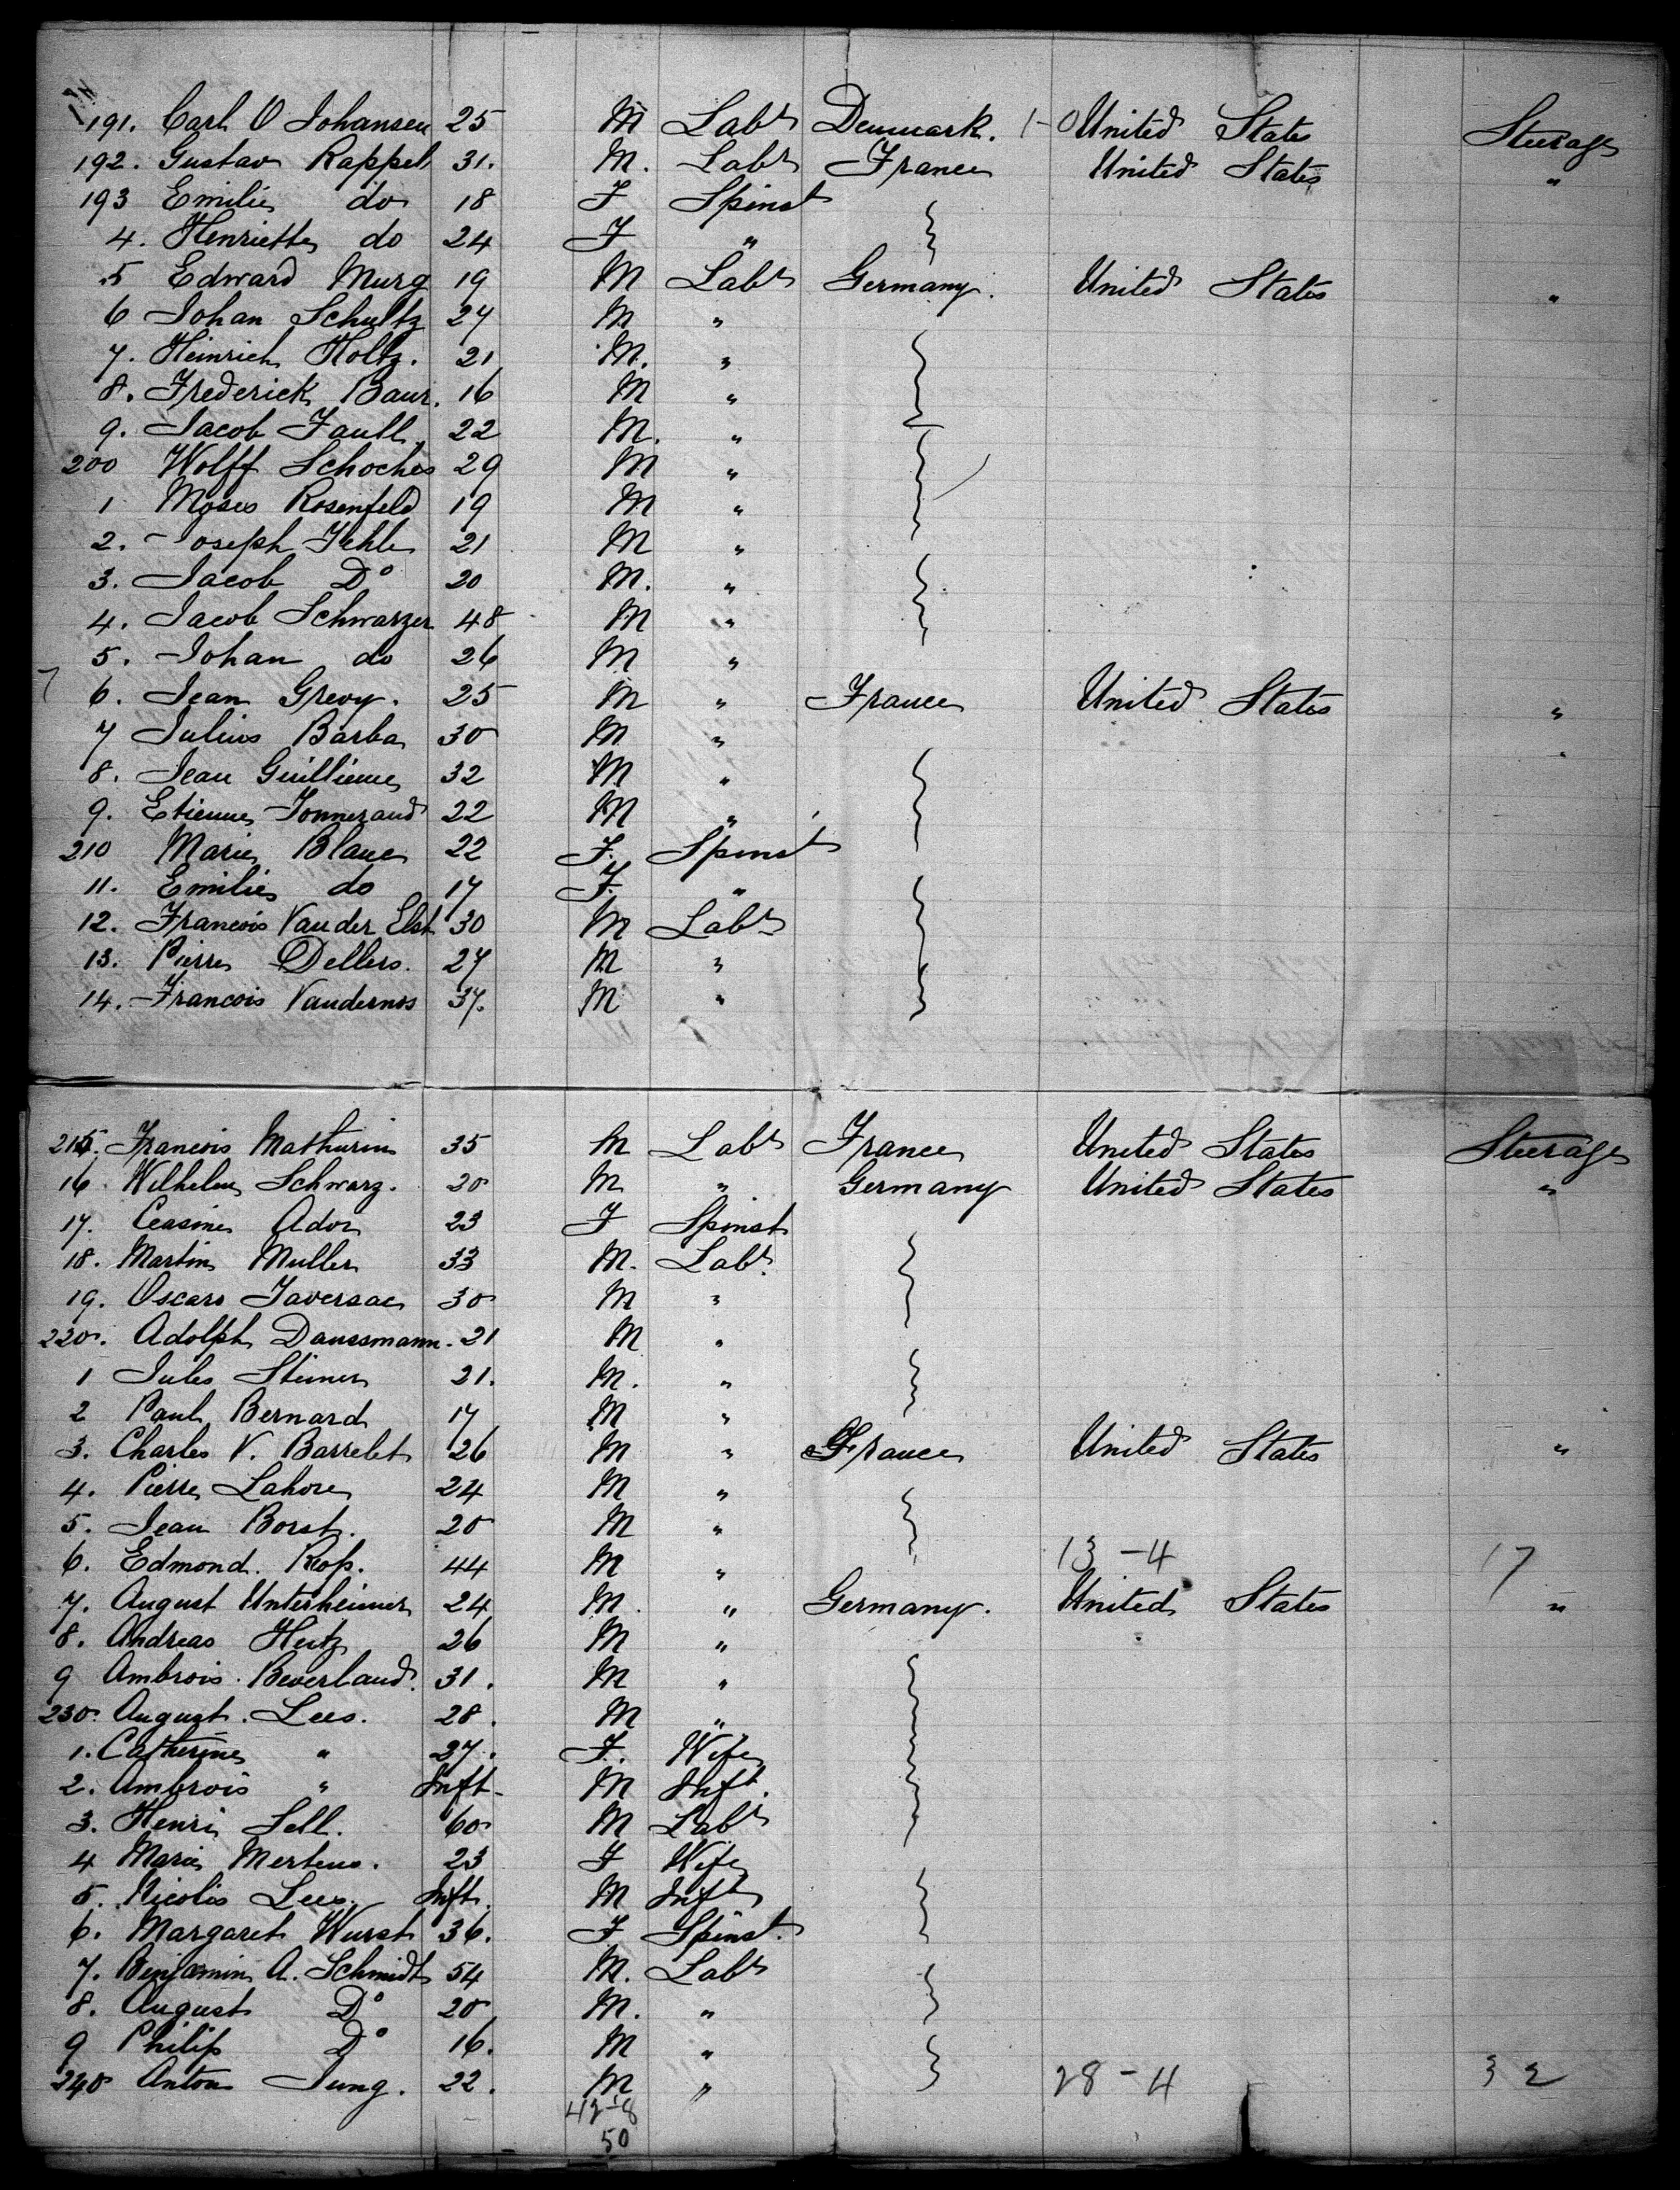 191. Carl O Johansen 25 M Labr Denmark. 1-0 United States Steerage
192. Gustav Rappel 31. M. Labr France United States "
193 Emilie do 18 F Spinst
4. Henriette do 24 F "
5 Edward Murg 19 M Labr Germany. United States "
6 Johan Schultz 27 M "
7. Heinrich Holtz. 21 M. "
8. Frederick Baur. 16 M "
9. Jacob Faull 22 M. "
200 Wolff Schoches 29 M "
1 Moses Rosenfeld 19 M "
2. Joseph Jehle 21 M "
3. Jacob Do 20 M. "
4. Jacob Schwarzer 48 M "
5. Johan do 26 M "
6. Jean Grevy. 25 M " France United States "
7 Julius Barba 30 M " "
8. Jean Guillieme 32 M "
9. Etienne Tonneraud 22 M "
210 Marie Blanc 22 F. Spinst
11. Emilie do 17 F. "
12. Francois Vander Elst 30 M Labr
13. Pierre Dellers. 27 M "
14. Francois Vandernos 37. M "
215. Francois Mathurin 35 M Labr France United States Steerage
16 Wilhelm Schwarz. 20 M " Germany United States "
17. Ceasine Ador 23 F Spinst
18. Martin Muller 33 M. Labr.
19. Oscare Taversac 30 M "
220. Adolph Daussmann. 21 M "
1 Jules Steiner 21. M. "
2 Paul Bernard 17 M "
3. Charles V. Barrelet 26 M " France United States "
4. Pierre Lahore 24 M "
5. Jean Borst. 20 M "
6. Edmond. Rops. 44 M " 13-4 17
7. August Unterheimer 24 M. " Germany. United States "
8. Andreas Heitz 26 M "
9 Ambrois. Beverland. 31. M "
230. August. Lees. 28. M "
1. Catherine " 27. F. Wife
2. Ambrois " Inft. M Inft.
3. Henri Sell. 60 M Labr
4 Marie Mertens. 23 F Wife
5. Nicolis Lees. Inft. M Inft
6. Margaret Wurst 36. F Spinst.
7. Binjamin A. Schmidt 54 M. Labr
8. August Do 20 M. "
9 Philip Do 16. M "
240 Anton Jung. 22. M " 28-4 32
42-8
50